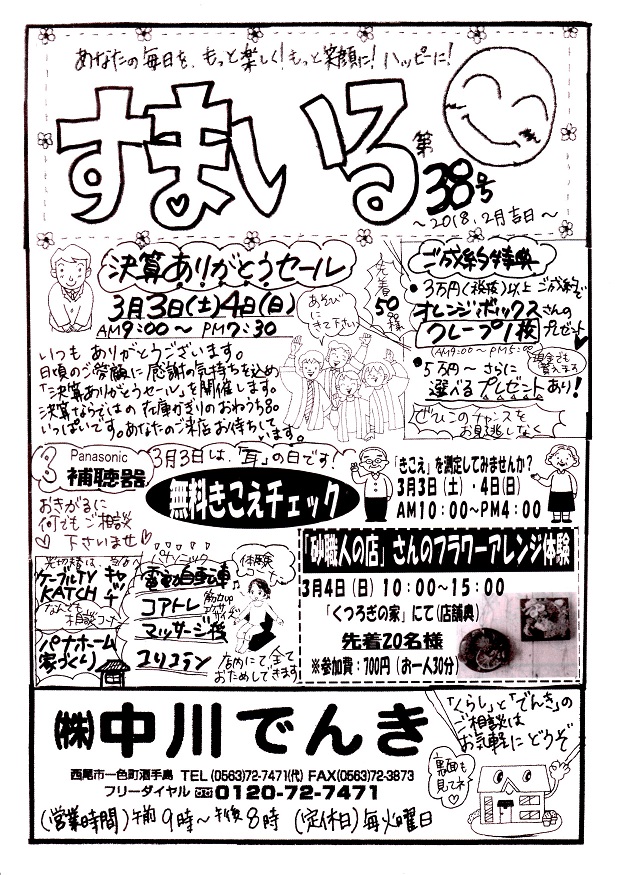 あなたの毎日を、もっと楽しく!もっと笑顔に!ハッピーに!
すまいる
第38号
~2018.2月吉日~
決算ありがとうセール
3月3日(土)4日(日)
AM9:00~PM7:30
先着50名様
あそびにきて下さい
いつも ありがとうございます。
日頃のご愛顧に感謝の気持ちを込め
「決算ありがとうセール」を開催します。
決算ならではの在庫かぎりのおわけ品
いっぱいです。あなたのご来店お待ちして
います。
ご成約特典
・3万円(税抜)以上ご成約で
オレンジボックスさんの
クレープ1枚 プレゼント
(AM9:00~PM5:00)
・5万円~さらに
現金でも
選べるプレゼントあり!
ぜひこのチャンスを
お見逃しなく
Panasonic
補聴器
おきがるに
何でもご相談
下さいませ
3月3日は、「耳」の日です!
無料きこえチェック
「きこえ」を測定してみませんか?
3月3日(土)・4日(日)
AM10:00~PM4:00
ケーブルTV
KATCH
キャッチ
なんでも相談コーナー
パナホーム
家づくり
パナソニック
電動自転車
コアトレ
マッサージ機
ユリコテン
体験コーナー
店内にて全て
おためしできます
「砂職人の店」さんのフラワーアレンジ体験
3月4日(日)10:00~15:00
「くつろぎの家」にて(店舗奥)
先着20名様
※参加費:700円(お一人30分)
㈱中川でんき
西尾市一色町酒手島 TEL(0563)72-7471(代) FAX(0563)72-3873
フリーダイヤル 0120-72-7471
(営業時間)午前9時~午後8時 (定休日)毎火曜日
「くらし」と「でんき」の
ご相談は
お気軽にどうぞ
裏面も
見てネ